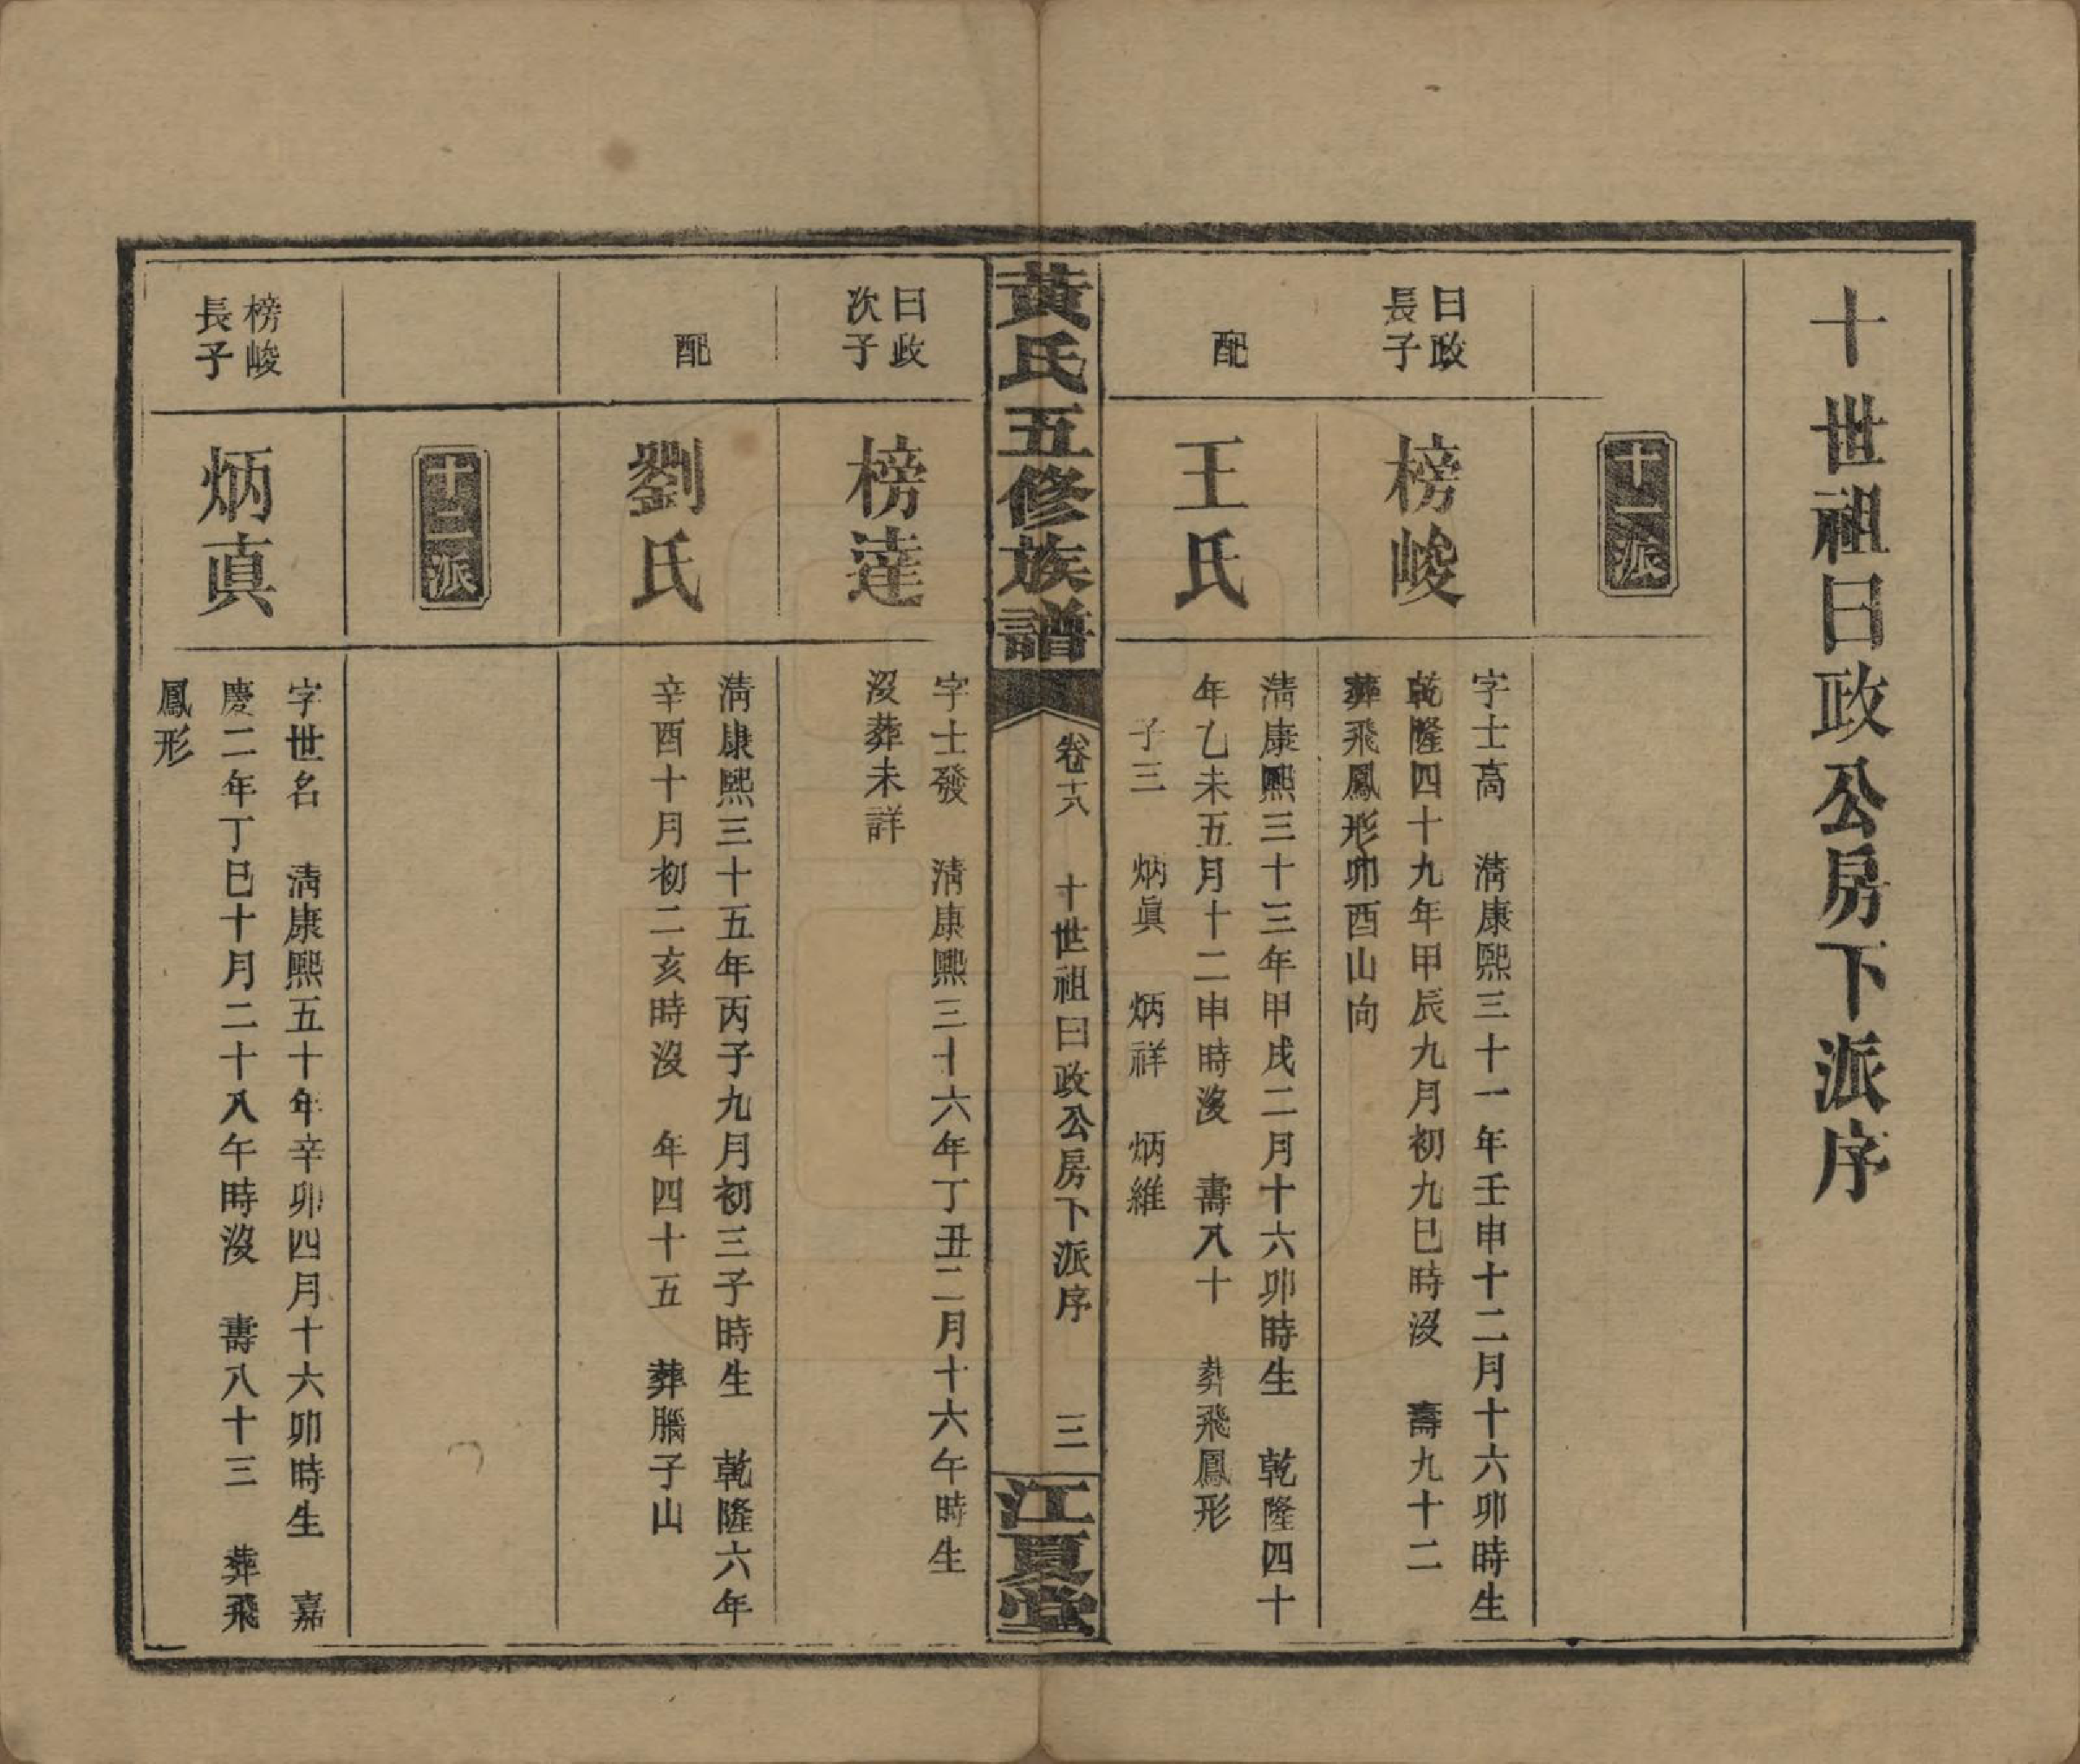 十世祖曰政公房下派序
十一派
曰政
長子
榜峻
字士高　清康熙三十一年壬申十二月十六卯時生
乾隆四十九年甲辰九月初九巳時沒　壽九十二
葬飛鳳形卯酉山向
配
王氏
清康熙三十三年甲戌二月十六卯時生　乾隆四十
年乙未五月十二申時沒　壽八十　葬飛鳳形
子三　炳眞　炳祥　炳維
黃氏五修族譜
卷十八　十世祖曰政公房下派序　三
江夏堂
曰政
次子
榜達
字士發　清康熙三十六年丁丑二月十六午時生
沒葬未詳
配
劉氏
清康熙三十五年丙子九月初三子時生　乾隆六年
辛酉十月初二亥時沒　年四十五　葬腦子山
十二派
榜峻
長子
炳真
字世名　清康熙五十年辛卯四月十六卯時生　嘉
慶二年丁巳十月二十八午時沒　壽八十三　葬飛
鳳形